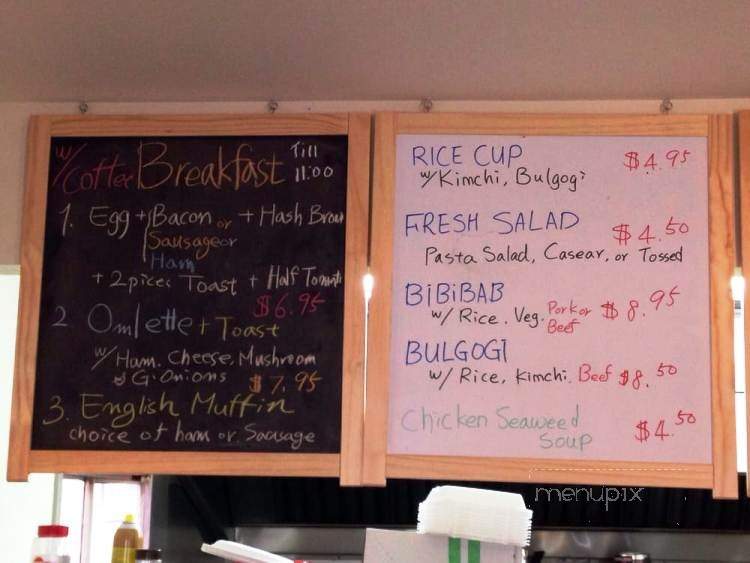 w/Coffee Breakfast Till 11:00
1. Egg + Bacon or + Hash Brown
Sausage or
Ham
+ 2 pices Toast + Half Tomato
$6.95
2 Omlette + Toast
w/Ham. Cheese, Mushroom
G. Onions $7.95
3. English Muffin
choice of ham or Sausage
RICE CUP $4.95
w/Kimchi, Bulgogi
FRESH SALAD $4.50
Pasta Salad, Casear, or Tossed
BiBiBAB $8.95
w/ Rice. Veg. Pork or
Beef
BULGOGI
w/ Rice, Kimchi. Beef $8.50
Chicken Seaweed
Soup $4.50
menupix